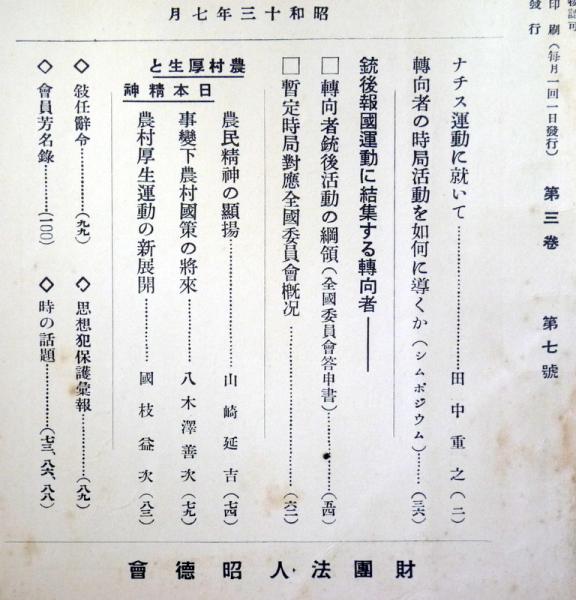 發行
印刷(每月一回一日發行)
第三卷 第七號
昭和十三年七月
ナチス運動に就いて………………田中重之(二)
轉向者の時局活動を如何に導くか(シムポジウム)……(三六)
銃後報國運動に結集する轉向者──
□轉向者銃後活動の綱領(全國委員會答申書)………(五四)
□暫定時局對應全國委員會概況………………(六二)
農村厚生と
日本精神
農民精神の顯揚………………山崎延吉(七四)
事變下農村國策の將來………八木澤善次(七九)
農村厚生運動の新展開………國枝益次(八三)
◇敍任辭令………(九九)
◇思想犯保護彙報………(八九)
◇會員芳名錄………(一〇〇)
◇時の話題………(七三、八六、八八)
財團法人昭德會